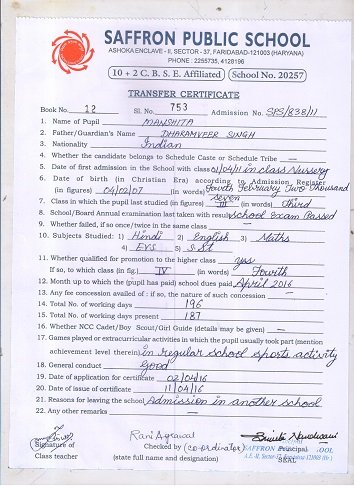 SAFFRON PUBLIC SCHOOL
ASHOKA ENCLAVE - II, SECTOR - 37, FARIDABAD-121003 (HARYANA)
PHONE : 2255735, 4128196
10 + 2 C. B. S. E. Affiliated School No. 20257
TRANSFER CERTIFICATE
Book No. 12 Sl. No. 753 Admission No. SPS/838/11
1. Name of Pupil MANSHITA
2. Father/Guardian's Name DHARAMVEER SINGH
3. Nationality Indian
4. Whether the candidate belongs to Schedule Caste or Schedule Tribe —
5. Date of first admission in the School with class 01/04/11 in class Nursery
6. Date of birth (in Christian Era) according to Admission Register
(in figures) 04/02/07 (in words) Fourth February Two Thousand
Seven
7. Class in which the pupil last studied (in figures) III (in words) Third
8. School/Board Annual examination last taken with result School Exam Passed
9. Whether failed, if so once/twice in the same class —
10. Subjects Studied: 1) Hindi 2) English 3) Maths
4) EVS 5) S.St
11. Whether qualified for promotion to the higher class yes
If so, to which class (in fig.) IV (in words) Fourth
12. Month up to which the (pupil has paid) school dues paid April 2016
13. Any fee concession availed of : if so, the nature of such concession —
14. Total No. of working days 196
15. Total No. of working days present 187
16. Whether NCC Cadet/Boy Scout/Girl Guide (details may be given) —
17. Games played or extracurricular activities in which the pupil usually took part (mention
achievement level therein) in regular school sports activity
18. General conduct Good
19. Date of application for certificate 02/04/16
20. Date of issue of certificate 11/04/16
21. Reasons for leaving the school Admission in another school
22. Any other remarks —
Rani Agrawal
Signature of Checked by (co-ordinator) Principal
Class teacher (state full name and designation) SEAL